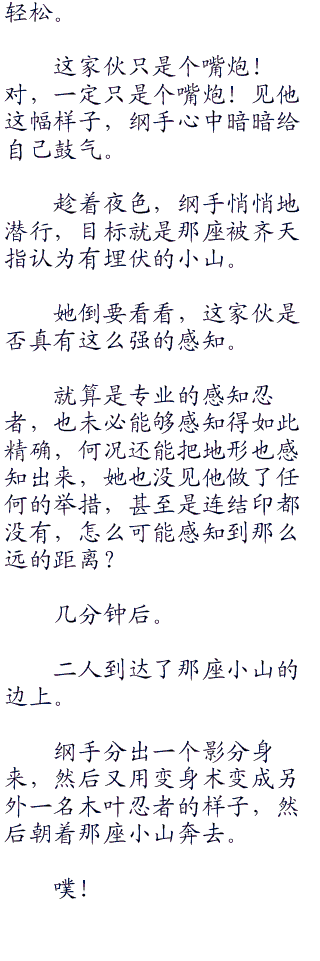 轻松。
这家伙只是个嘴炮！
对，一定只是个嘴炮！见他
这幅样子，纲手心中暗暗给
自己鼓气。
趁着夜色，纲手悄悄地
潜行，目标就是那座被齐天
指认为有埋伏的小山。
她倒要看看，这家伙是
否真有这么强的感知。
就算是专业的感知忍
者，也未必能够感知得如此
精确，何况还能把地形也感
知出来，她也没见他做了任
何的举措，甚至是连结印都
没有，怎么可能感知到那么
远的距离？
几分钟后。
二人到达了那座小山的
边上。
纲手分出一个影分身
来，然后又用变身术变成另
外一名木叶忍者的样子，然
后朝着那座小山奔去。
噗！